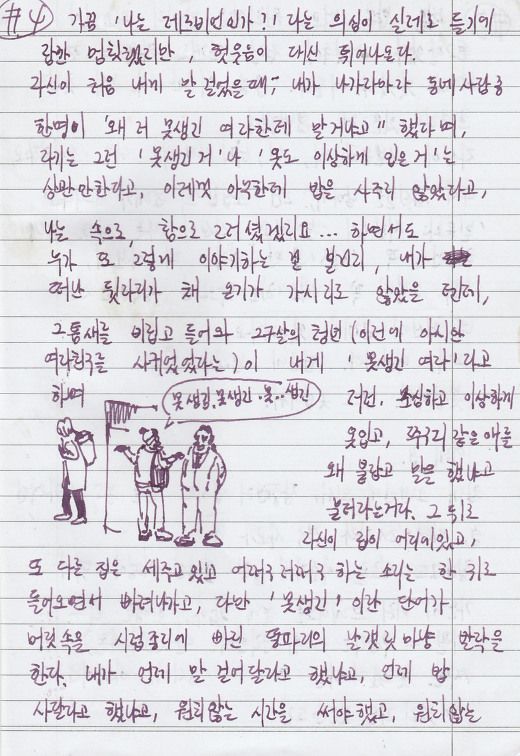 #4 가끔 '나는 레즈비언인가?' 라는 의심이 실제로 들기에
잠깐 멈칫했지만, 헛웃음이 대신 튀어나온다.
자신이 처음 내게 말 걸었을 때, 내가 나가자마자 동네사람 중
한명이 '왜 저 못생긴 여자한테 말 거냐고" 했다며,
자기는 그런 '못생긴 거'나 '옷도 이상하게 입은 거'는
상관 안한다고, 이제껏 아무한테 밥을 사주지 않았다고,
나는 속으로, 참으로 그러셨겠지요... 하면서도
누가 또 그렇게 이야기하는 걸 보건데, 내가
떠난 뒷자리가 채 온기가 가시지도 않았을 텐데,
그 틈새를 비집고 들어와 29살의 청년(이전에 아시안
여자친구를 사귀었었다는)이 내게 '못생긴 여자'라고
하며
못생긴, 못생긴..못..생긴
저런, 소심하고 이상하게
옷입고, 쭈구리 같은 애를
왜 불렀고 말을 했냐고
놀려댔다는거다. 그 뒤로
자신이 집이 어디에있고,
또 다른 집은 세주고 있고 어쩌구저쩌구 하는 소리는 한 귀로
들어오면서 빠져나가고, 다만 '못생긴' 이란 단어가
머릿속을 시럽종지에 빠진 똥파리의 날갯짓마냥 발악을
한다. 내가 언제 말 걸어달라고 했냐고, 언제 밥
사달라고 했냐고, 원치않는 시간을 써야했고, 원치않는